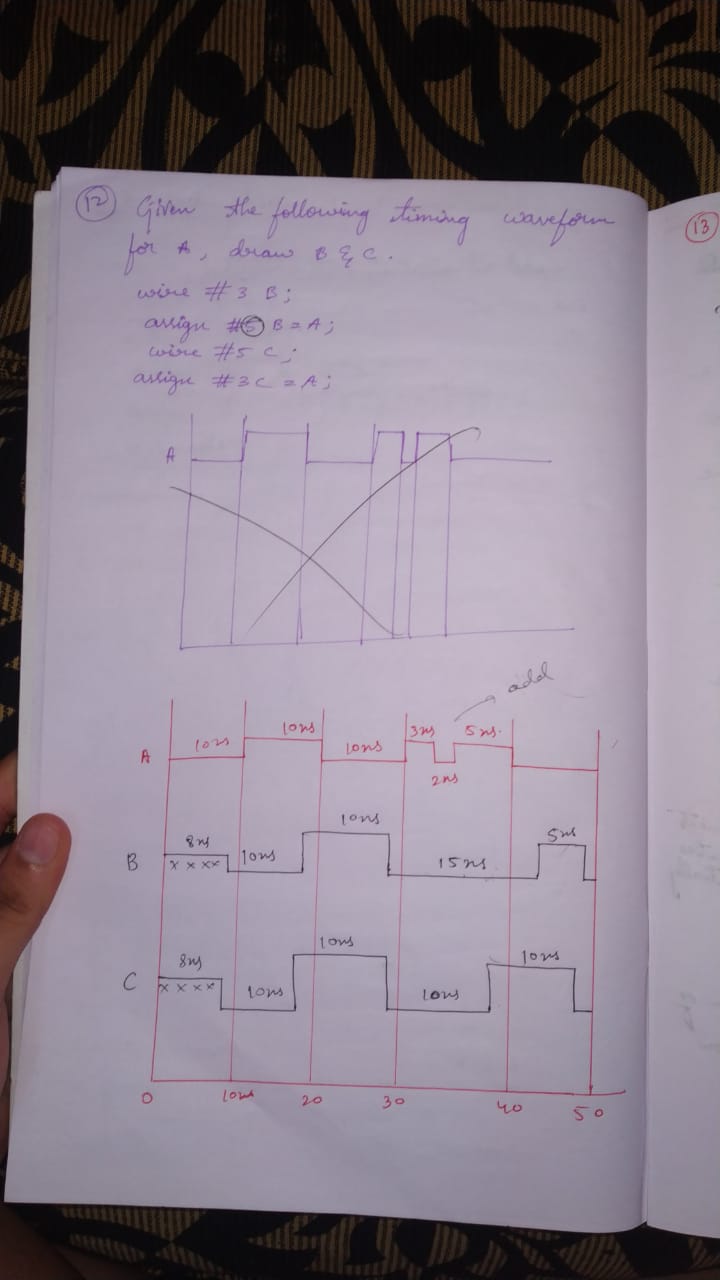 12 Given the following timing waveform
for A, draw B & C.
wire #3 B;
assign #5 B = A;
wire #5 C;
assign #3 C = A;
A
add
A 10ns 10ns 10ns 3ns 2ns 5ns.
B 8ns x x x x 10ns 10ns 15ns 5ns
C 8ns x x x x 10ns 10ns 10ns 10ns
0 10ns 20 30 40 50
13